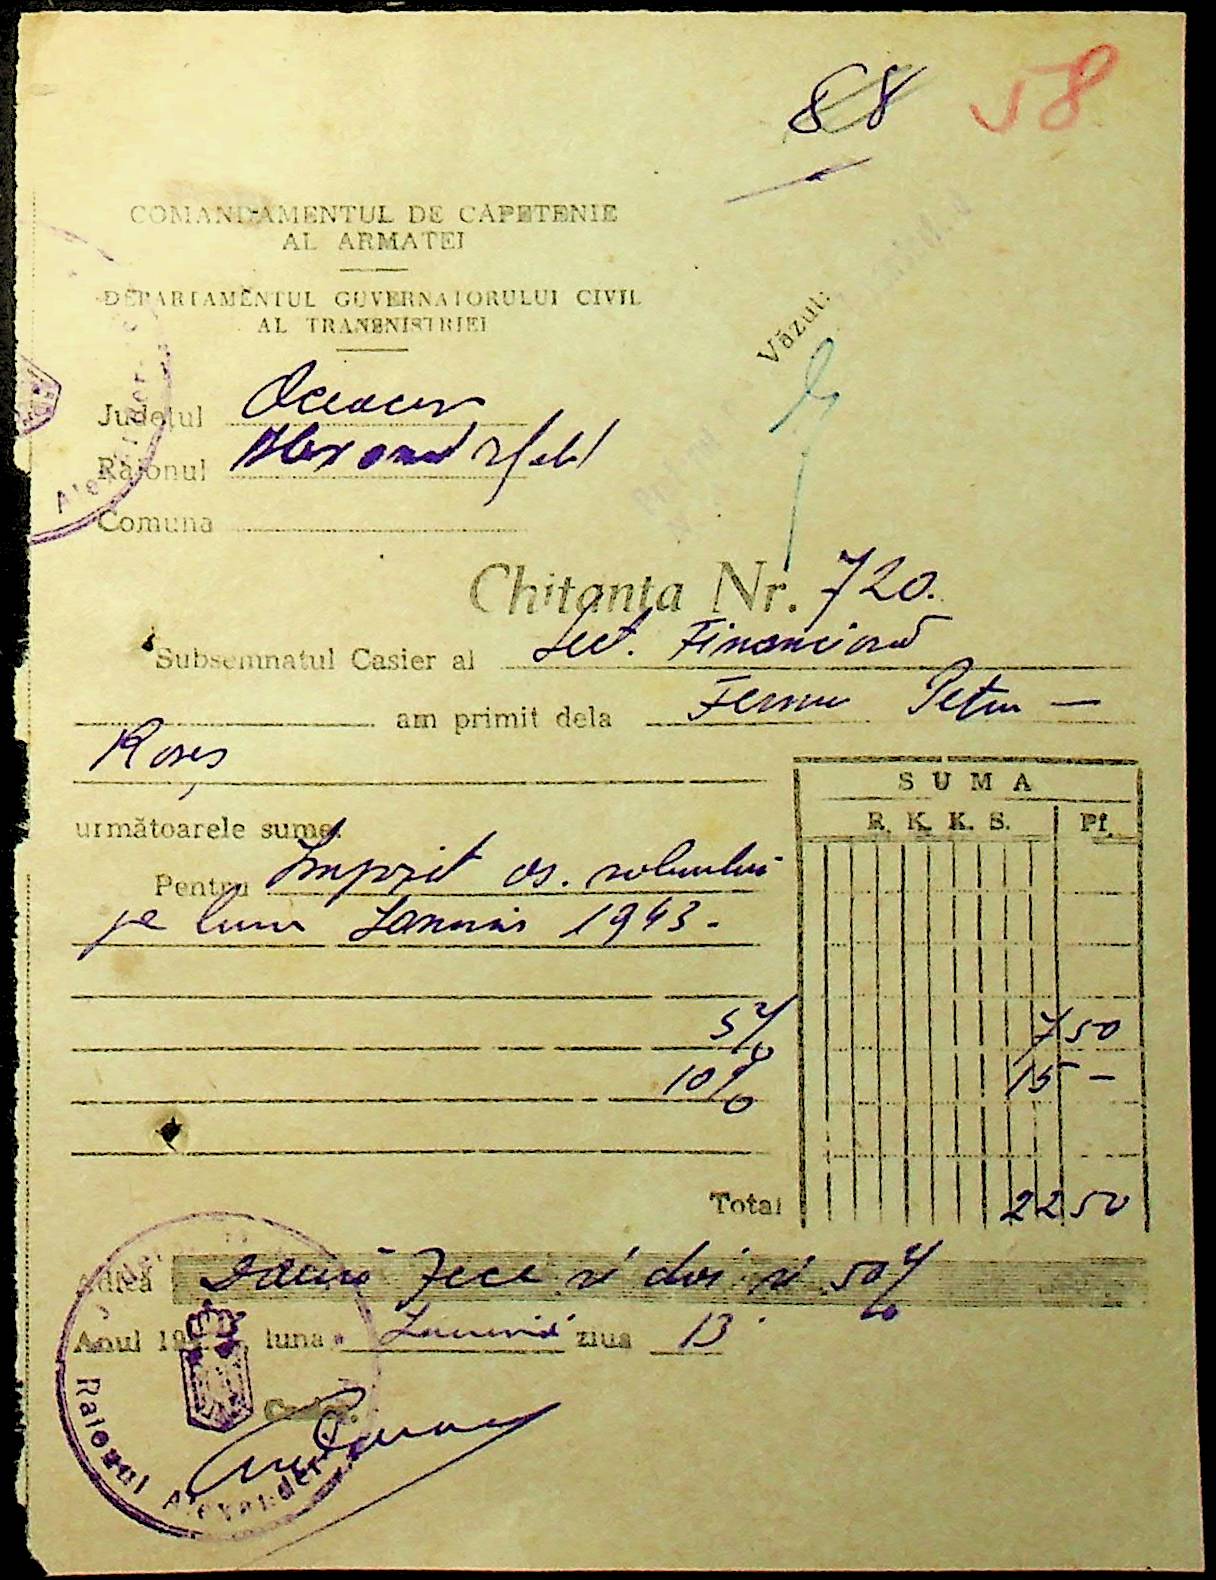 88 58
COMANDAMENTUL DE CAPETENIE
AL ARMATEI
DEPARTAMENTUL GUVERNATORULUI CIVIL
AL TRANSNISTRIEI
Văzut:
Judeţul Oceacov
Raionul Alexanderfeld
Comuna
Chitanta Nr. 720.
Subsemnatul Casier al Sect. Financiară
am primit dela Ferma Petru —
Rareş
următoarele sume:
SUMA
R. K. K. S. Pf.
Pentru Impozit as.
pe luna Ianuarie 1943.-
5% 7 50
10% 15 -
Total 22 50
Adică Două zece si doi si 50%
Anul 194 luna Ianuarie ziua 13
Casier,
Raionul Alexanderfeld